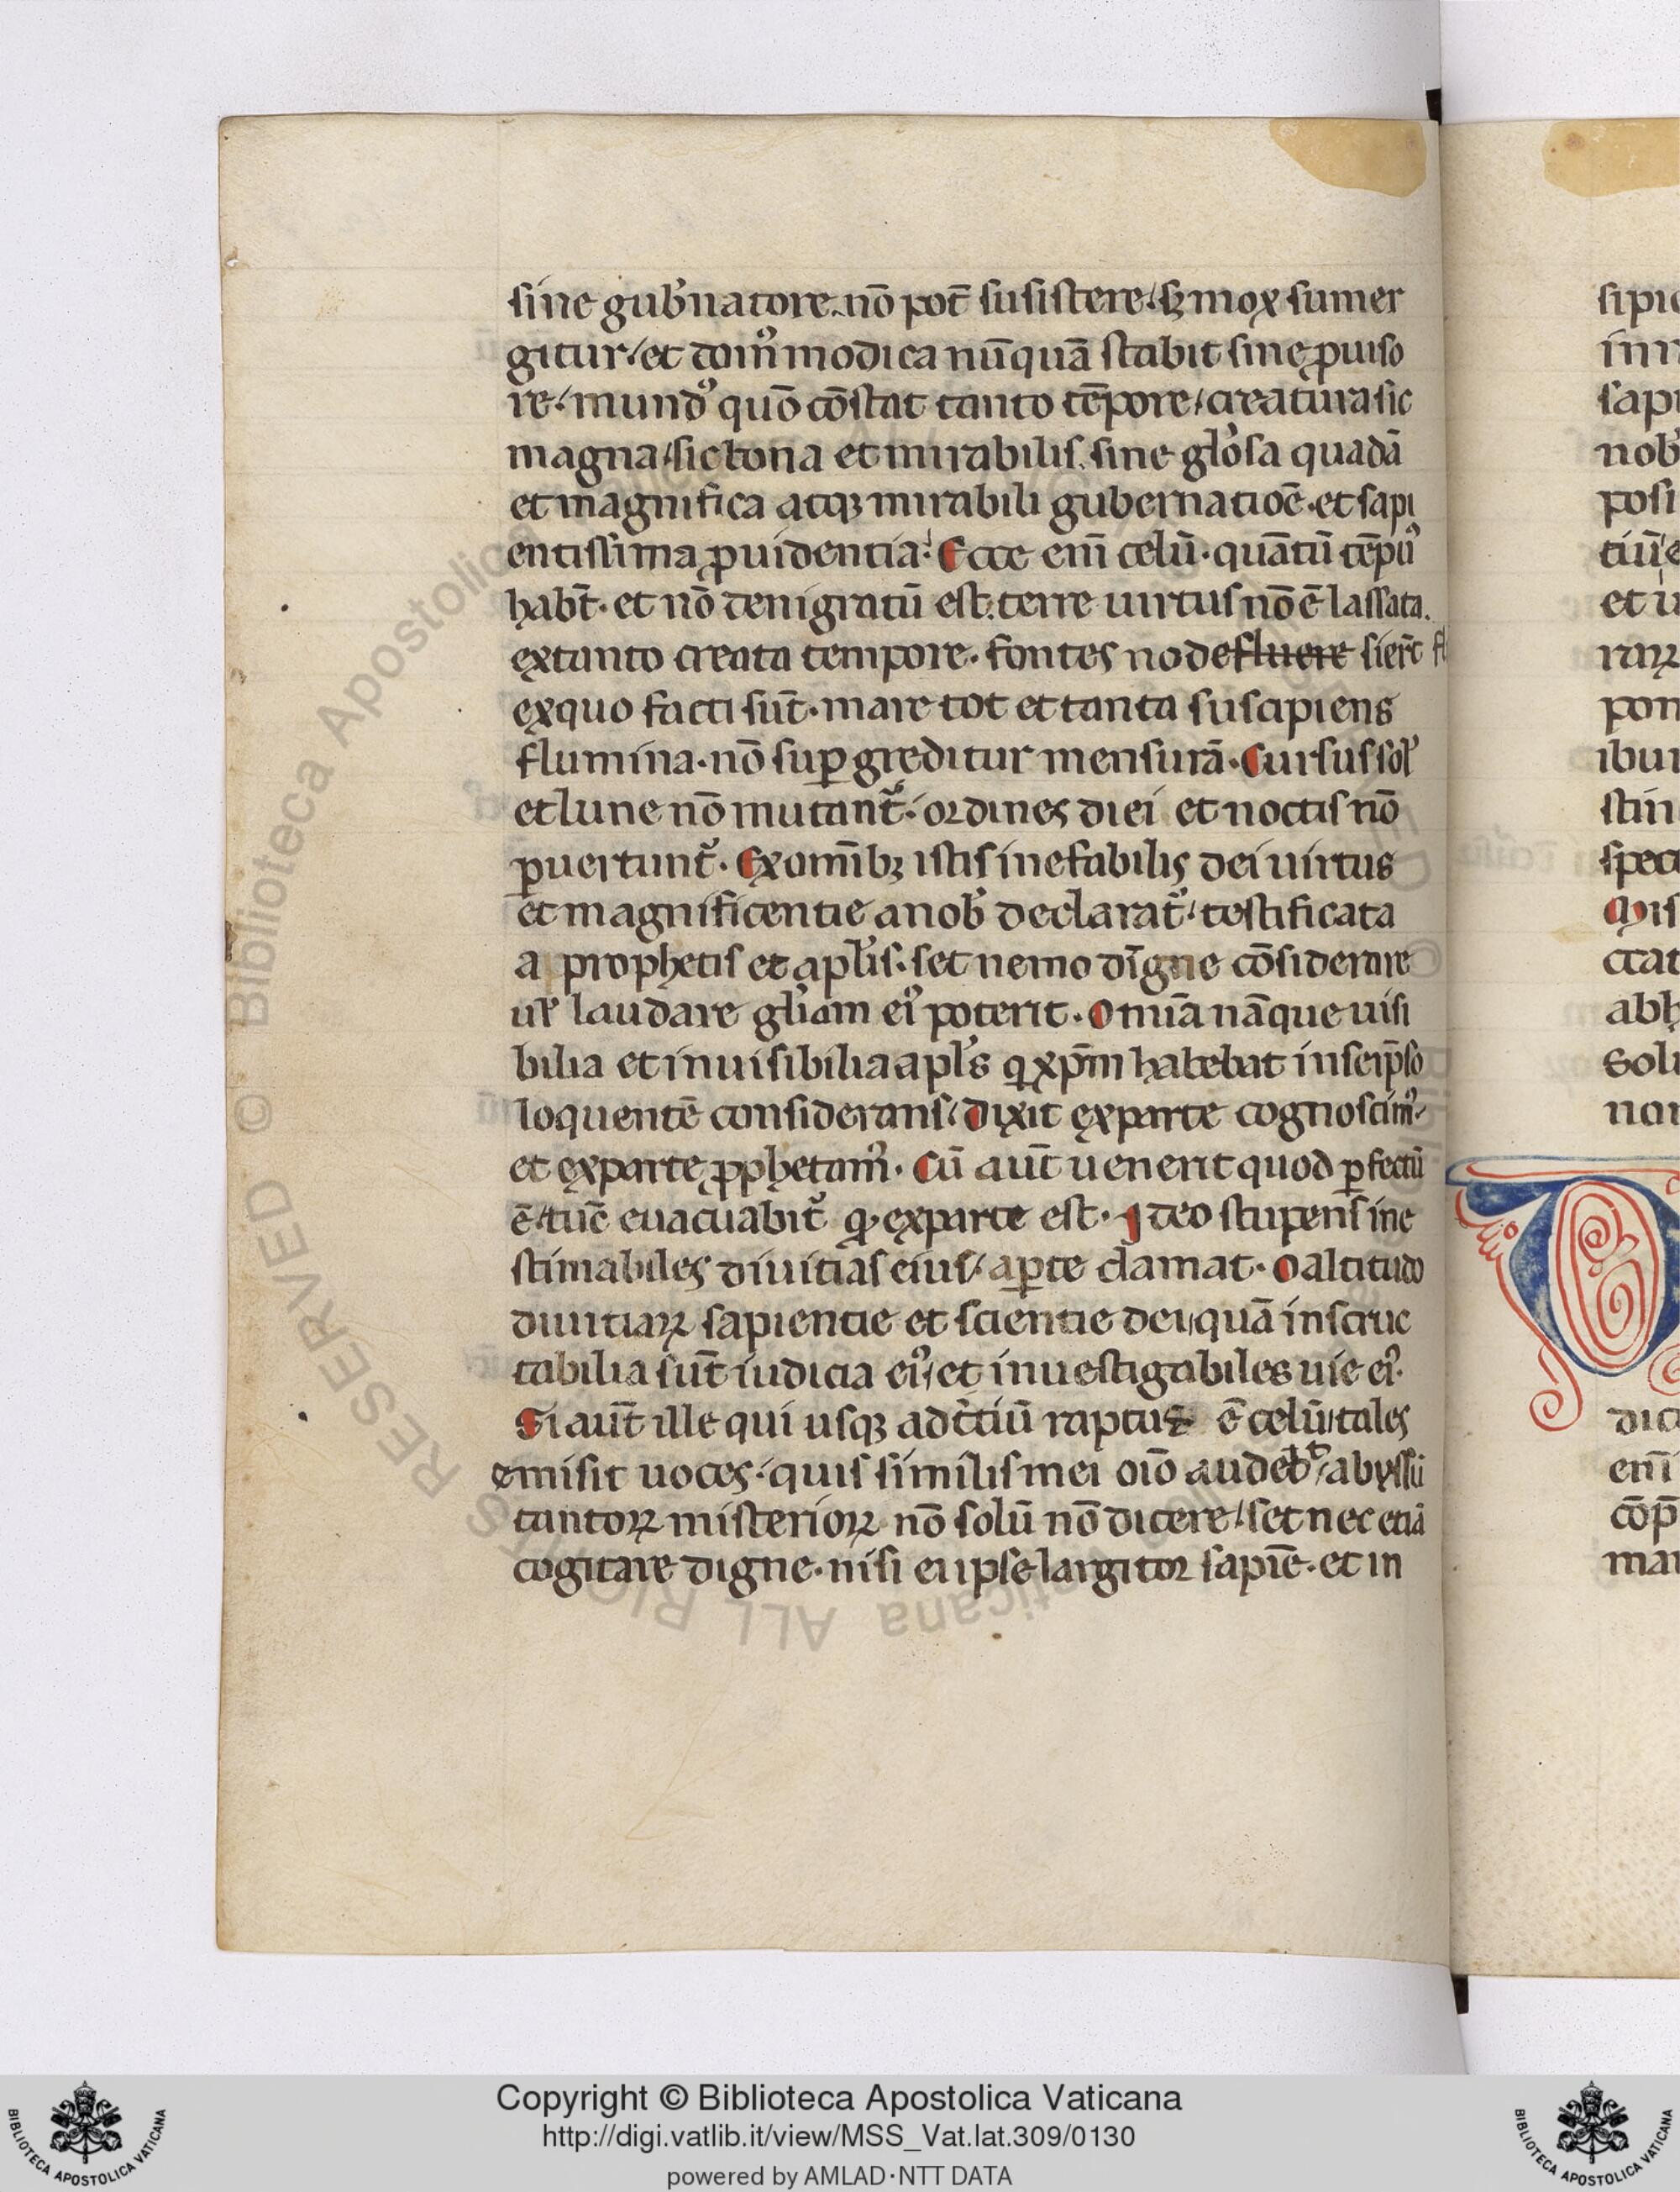 sine gub'natore. nō pot̄ susistere. sꝫ mox sumer
gitur. et domꝰ modica nūquā stabit sine ꝓuiso
re. mundꝰ quō cōstat tanto tēpore, creatura sic
magna, sic bona et mirabilis, sine glo'sa quadā
et magnifica atqꝫ mirabili gubernatiōe. et sapi
entissima ꝓuidentia. Ecce eni̅ celū. quātū tēpꝰ
habt̄. et nō denigratū est. terre uirtus nō ē lassata.
ex tanto creata tempore. fontes no defluere sier̄t
ex quo facti sūt. mare tot et tanta suscipiens
flumina. nō suꝑgreditur mensurā. Cursus sol'
et lune nō mutant᷑. ordines diei et noctis nō
ꝑuertunt᷑. Ex om̄ibꝫ istis inefabilis dei uirtus
et magnificentie a nob' declarat᷑. testificata
a prophetis et apl'is. set nemo digne cōsiderare
ul' laudare gl'iam eiꝰ poterit. Omia̅ nāque uisi
bilia et inuisibilia apl's q xp̄m habebat in seip̄so
loquentē considerans. dixit ex parte cognoscimꝰ
et ex parte ꝓphetamꝰ. Cū aut̄ uenerit quod ꝑfectū
ē. tūc euacuabit᷑ qđ ex parte est. Ideo stupens ine
stimabiles diuitias eius. aꝑte clamat. O altitudo
diuitiaꝝ sapientie et scientie dei, quā inscruc
tabilia sūt iudicia eiꝰ, et inuestigabiles uie eiꝰ.
Si aut̄ ille qui usqꝫ ad t'tiū raptus ē celū, tales
emisit uoces. quis similis mei oīo audeb'. abyssū
tantoꝝ misterioꝝ nō solū nō dicere. set nec etiā
cogitare digne. nisi ei ipse largitor sapīe. et in
sapi
nob
posi
et u
pon
ibu
stin
spec
ctat
abh
Solu
non
dic
cōp
mai
© Biblioteca Apostolica Vaticana ALL RIGHTS RESERVED
Copyright © Biblioteca Apostolica Vaticana
http://digi.vatlib.it/view/MSS_Vat.lat.309/0130
powered by AMLAD·NTT DATA
BIBLIOTECA APOSTOLICA VATICANA
BIBLIOTECA APOSTOLICA VATICANA